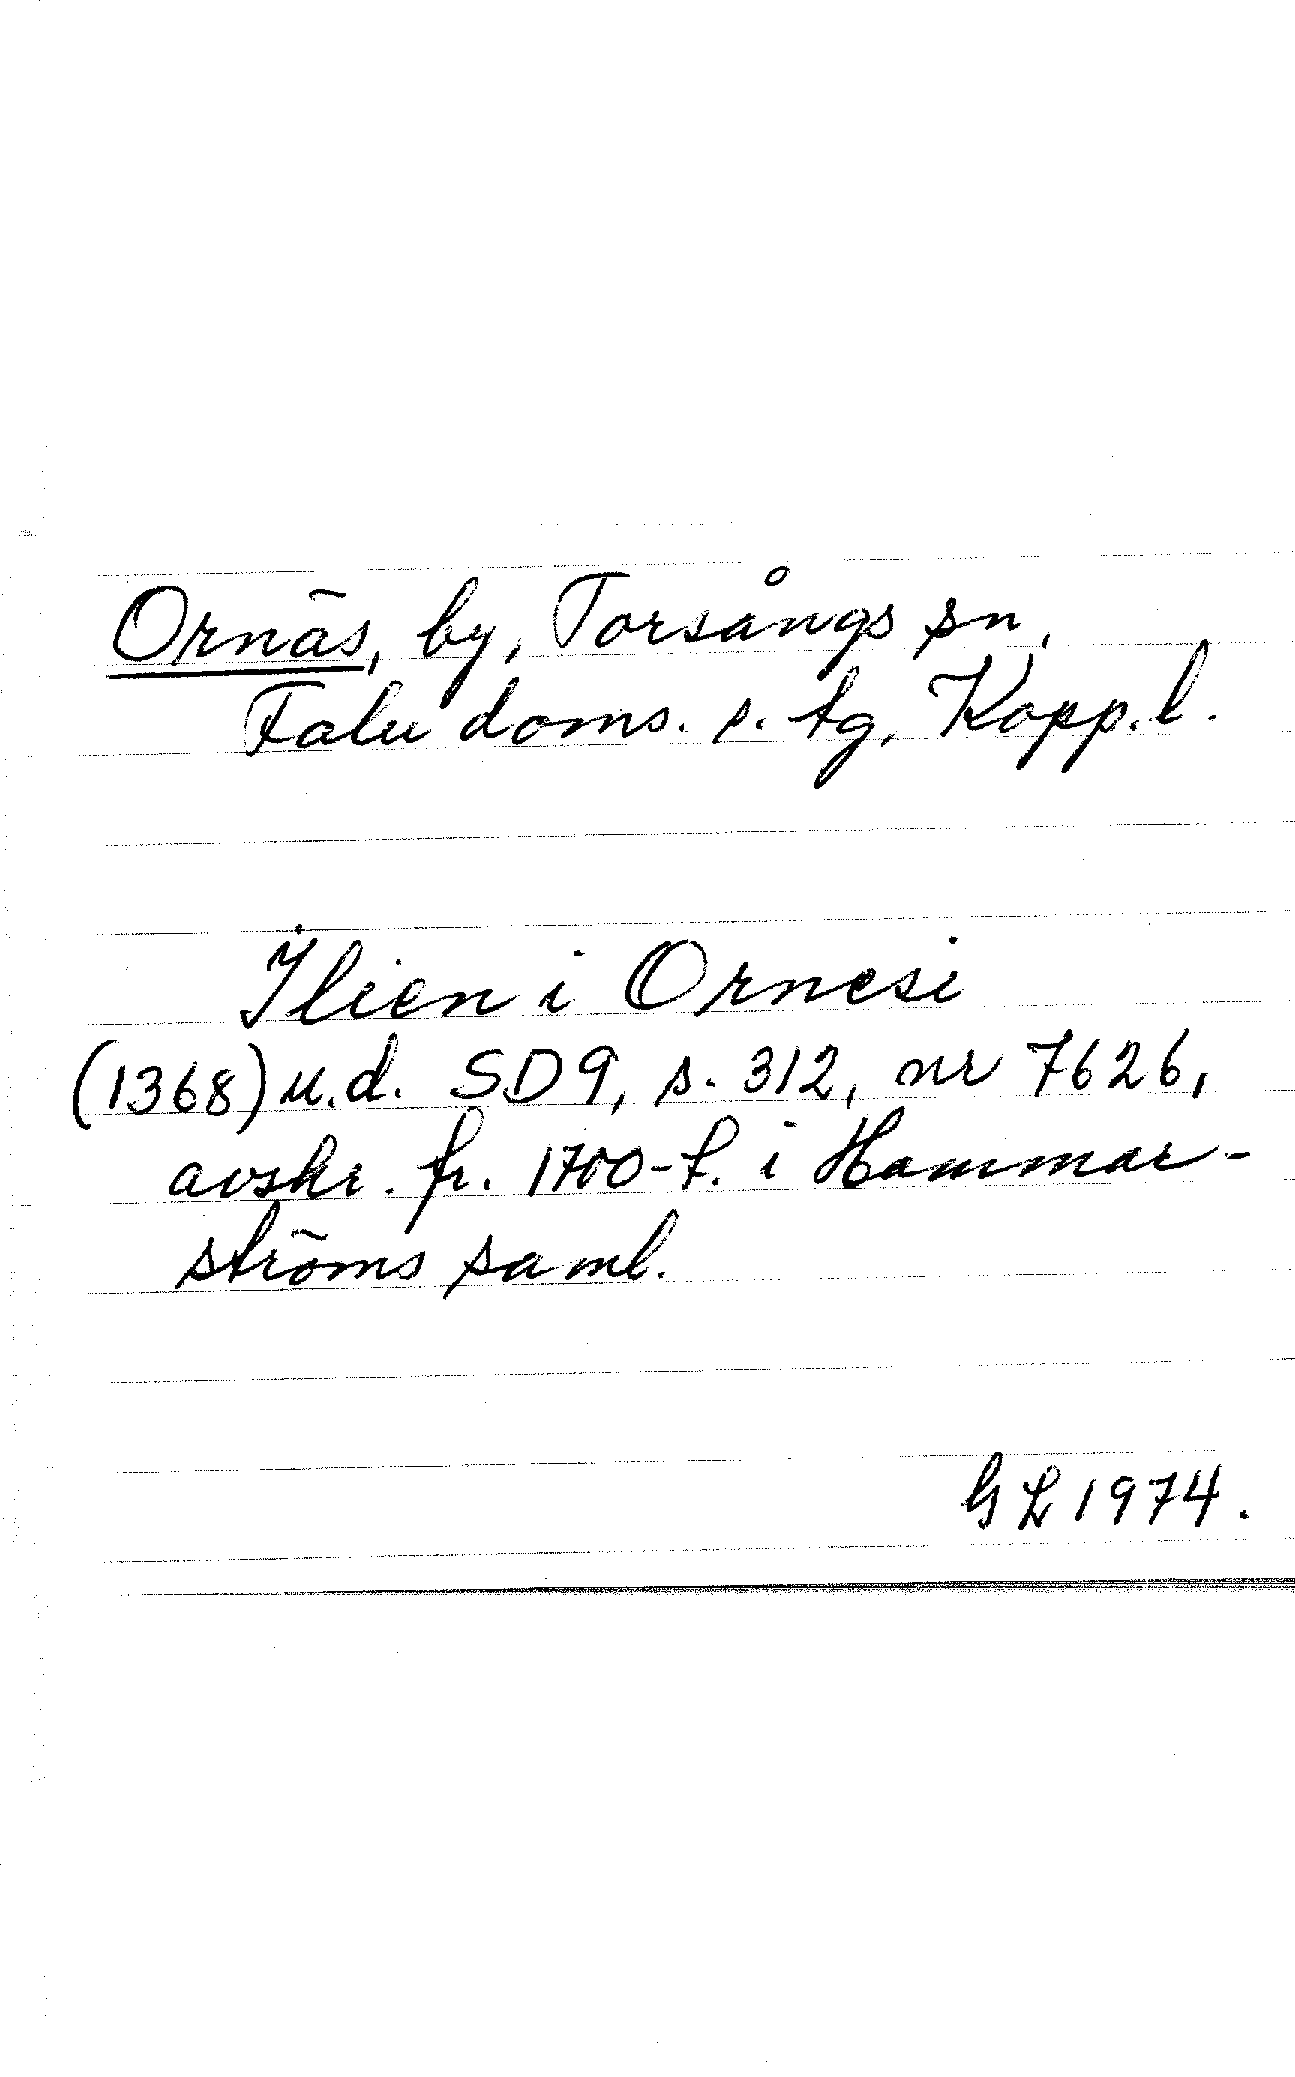 Ornäs, by, Torsångs sn,
Falu doms. s. tg, Kopp. l.
Ilien i Ornesi
(1368) u.d. SD 9, s. 312, nr 7626,
avskr. fr. 1700-t. i Hammar-
ströms saml.
GL 1974.